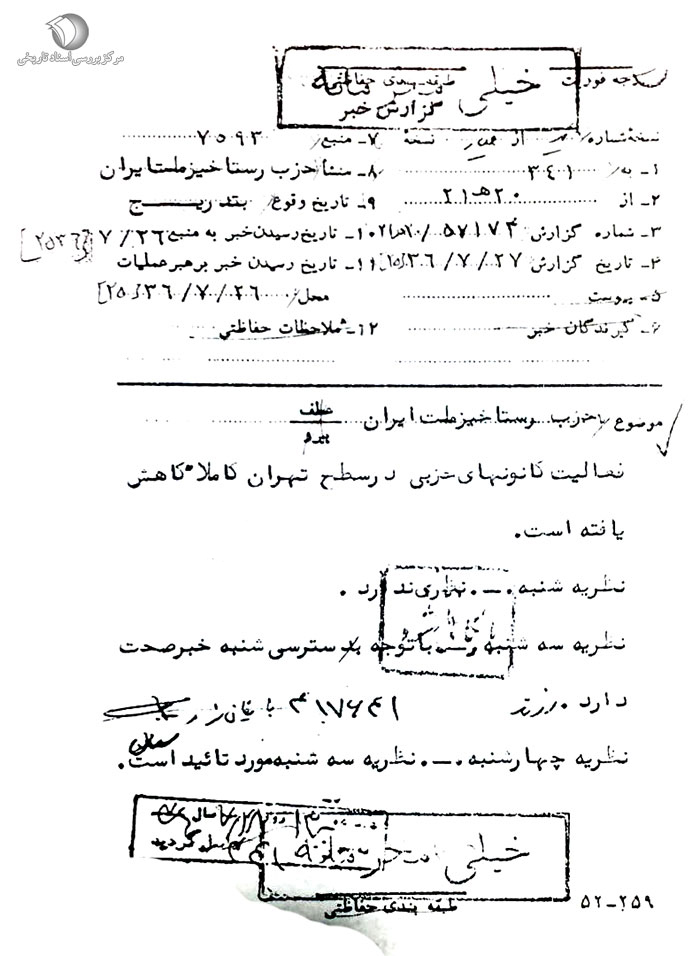 مرکز بررسی اسناد تاریخی
طبقه بندی حفاظتی
خیلی محرمانه
گزارش خبر
نسخه شماره از نسخه ۷ـ منبع ۷۵۹۳
۱ـ به ۳۴۱ ۸ـ منشا حزب رستاخیز ملت ایران
۲ـ از ۲۰هـ۲۱ ۹ـ تاریخ وقوع بتدریج
۳ـ شماره گزارش ۵۷۱۷۴/ ۱۰ـ تاریخ رسیدن خبر به منبع ۷/۲۶ [۲۵۳۶]
۴ـ تاریخ گزارش ۳۶/۷/۲۷[۲۵] ۱۱ـ تاریخ رسیدن خبر به رهبر عملیات
۵ـ پیوست محل ۳۶/۷/۲۶[۲۵]
۶ـ گیرندگان خبر ۱۲ـ ملاحظات حفاظتی
موضوع حزب رستاخیز ملت ایران
عطف
پیرو
فعالیت کانونهای حزبی در سطح تهران کاملاً کاهش
یافته است.
نظریه شنبه .ـ. نظری ندارد .
نظریه سه شنبه با توجه به دسترسی شنبه خبر صحت
دارد.
نظریه چهارشنبه .ـ. نظریه سه شنبه مورد تائید است.
خیلی محرمانه
گردید
طبقه بندی حفاظتی
۵۲ـ۲۵۹